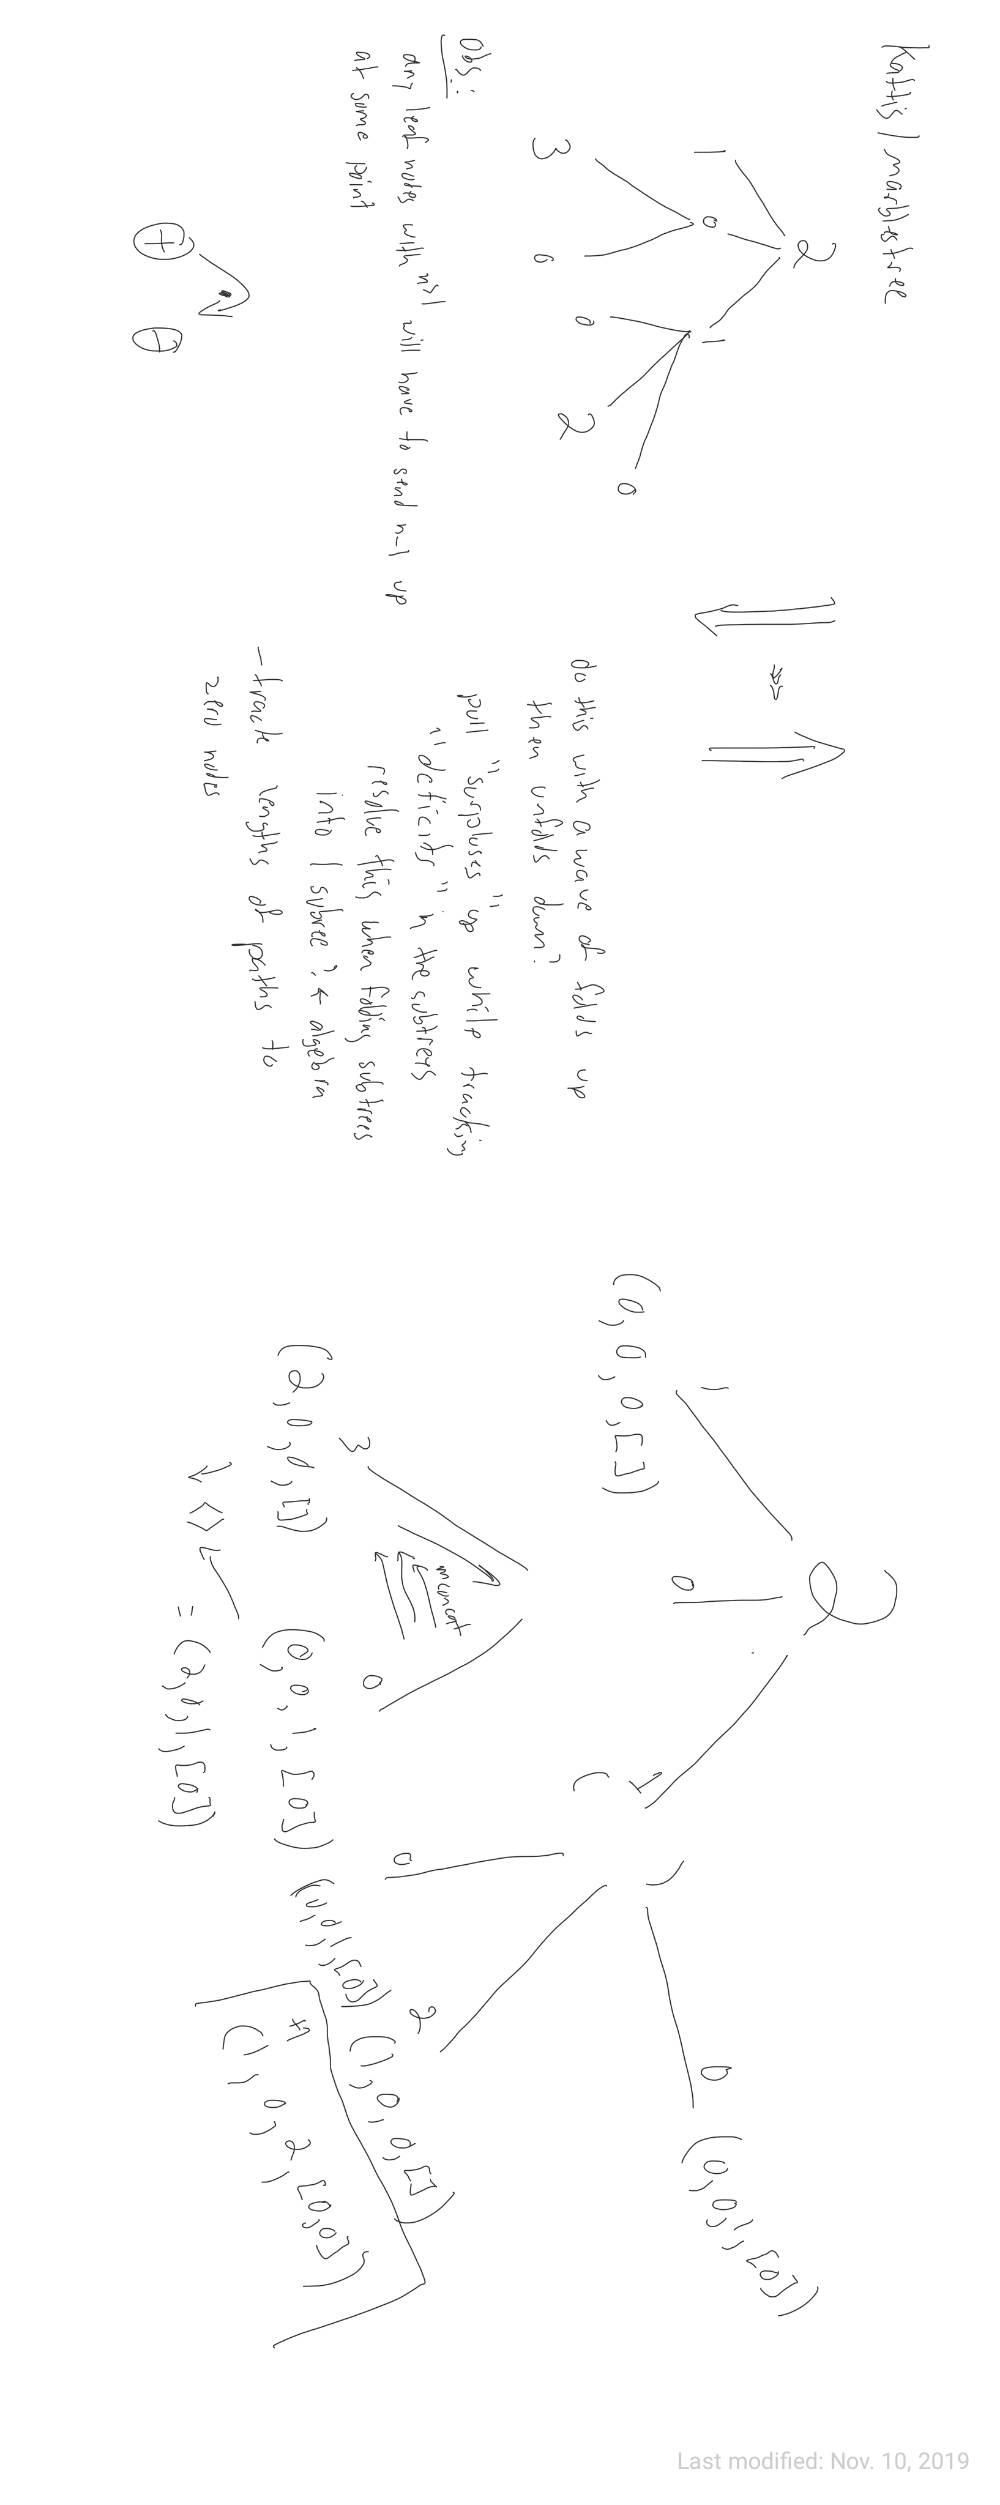 Kattis/marblestree
2
1 0 1
3 0 0 2 0
Obs:
any leaf node with "n" will have to send n-1 up
at some point
do this with a wave of folds up
then unfolds down?
pull "surpluses" up while tracking
"deficit" in the subtrees
resolve this when folding subtrees
into 1 subtree? < algebra
- track lengths of paths to
zero nodes
+
2
1
(0, 0, 0, [])
0
1
0
(0, 0, 1, [0])
movement
3
0
0
2
(2, 0, 0, [])
(0, 0, 1, [0])
(0, 0, 1, [0])
(1, 0, 0, [])
(1, 0, 2, [0,0])
= (2, 0, 1, [0])
Last modified: Nov. 10, 2019